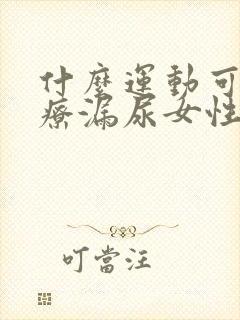 什麼運動可
療漏尿女性
叮當汪